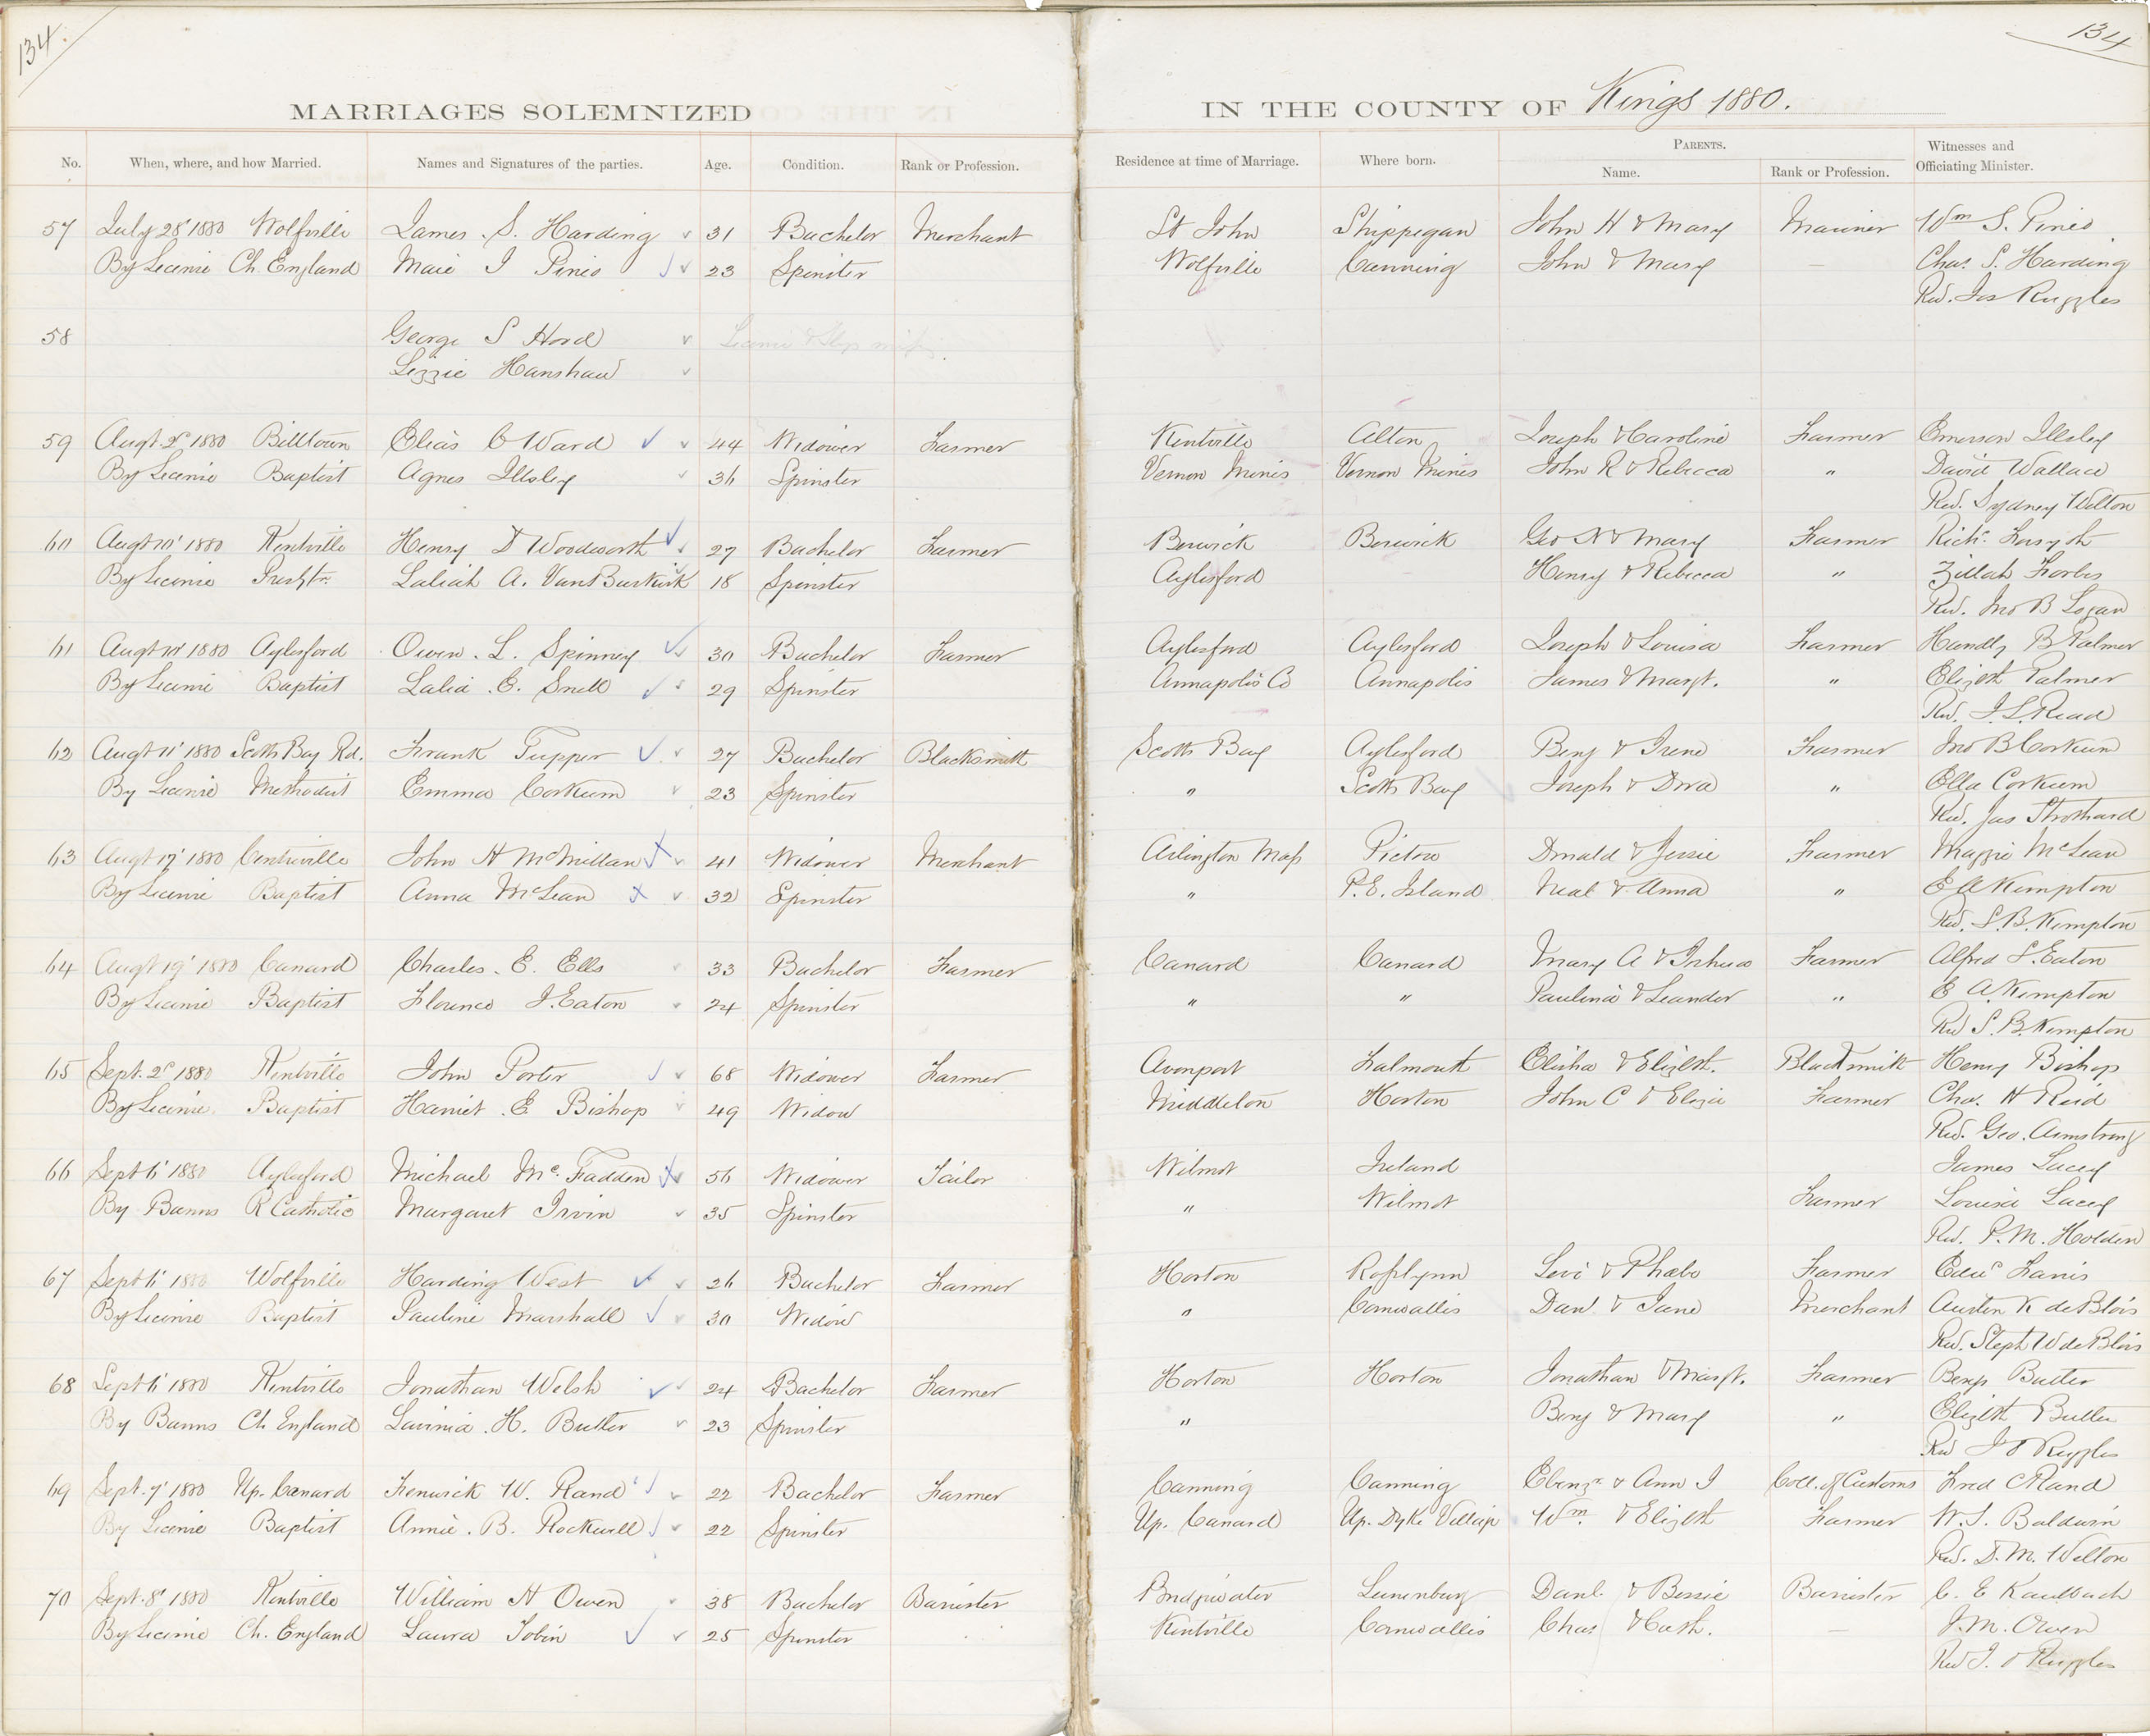 134.
134
MARRIAGES SOLEMNIZED IN THE COUNTY OF Kings 1880.
No. When, where, and how Married. Names and Signatures of the parties. Age. Condition. Rank or Profession. Residence at time of Marriage. Where born. PARENTS. Name. Rank or Profession. Witnesses and Officiating Minister.
57 July 28' 1880 Wolfville James . S. Harding 31 Bachelor Merchant St John Shippegan John H & Mary Mariner Wm S. Pineo
By License Ch. England Maie I Pineo 23 Spinster Wolfville Canning John & Mary — Chas. S. Harding
Rev. Jos Ruggles
58 George S Hord License & Slip
Lizzie Hanshaw
59 Augt. 2d 1880 Billtown Elias C Ward 44 Widower Farmer Kentville Alton Joseph & Caroline Farmer Emerson Illsley
By License Baptist Agnes Illsley 36 Spinster Vernon Mines Vernon Mines John R & Rebecca " David Wallace
Rev. Sydney Welton
60 Augt 10' 1880 Kentville Henry D Woodworth 27 Bachelor Farmer Berwick Berwick Geo N & Mary Farmer Richd. Forsyth
By License Presbtn. Laliah A. VanBuskirk 18 Spinster Aylesford — Henry & Rebecca " Zillah Forbes
Rev. Jno B Logan
61 Augt 10' 1880 Aylesford Owen . L. Spinney 30 Bachelor Farmer Aylesford Aylesford Joseph & Louisa Farmer Handly B Palmer
By License Baptist Lalia . E. Snell 29 Spinster Annapolis Co Annapolis James & Margt. " Elizbth Palmer
Rev. J. L. Read
62 Augt 11' 1880 Scotts Bay Rd. Frank Tupper 27 Bachelor Blacksmith Scotts Bay Aylesford Benj & Irene Farmer Jno B Corkum
By License Methodist Emma Corkum 23 Spinster " Scotts Bay Joseph & Drva " Ella Corkum
Rev. Jas Strothard
63 Augt 17' 1880 Centreville John H McMillan 41 Widower Merchant Arlington Mass Pictou Donald & Jessie Farmer Maggie McLean
By License Baptist Anna McLean 32 Spinster " P. E. Island Neal & Anna " E A Kempton
Rev. S. B. Kempton
64 Augt 19' 1880 Canard Charles . E. Ells 33 Bachelor Farmer Canard Canard Mary A & Joshua Farmer Alfred S. Eaton
By License Baptist Florence J. Eaton 24 Spinster " " Paulina & Leander " E A. Kempton
Rev S. B. Kempton
65 Sept. 2d 1880 Kentville John Porter 68 Widower Farmer Avonport Falmouth Elisha & Elizbth. Blacksmith Henry Bishop
By License. Baptist Harriet . E Bishop 49 Widow Middleton Horton John C & Eliza Farmer Chas. H Reid
Rev. Geo. Armstrong
66 Sept 6' 1880 Aylesford Michael Mc. Fadden 56 Widower Tailor Wilmot Ireland James Lacey
By Banns R Catholic Margaret Irvin 35 Spinster " Wilmot Farmer Louisa Lacey
Rev. P. M. Holden
67 Sept 6' 1880 Wolfville Harding West 26 Bachelor Farmer Horton Rosslynn Levi & Phebe Farmer Edwd Farris
By License Baptist Pauline Marshall 30 Widow " Cornwallis Danl. & Jane Merchant Austen K de Blois
Rev. Steph W de Blois
68 Sept 6' 1880 Kentville Jonathan Welsh 24 Bachelor Farmer Horton Horton Jonathan & Margt. Farmer Benj Butler
By Banns Ch. England Lavinia . H. Butler 23 Spinster " Benj & Mary " Elizbth Butler
Rev J O Ruggles
69 Sept. 7' 1880 Up. Canard Fenwick W. Rand 22 Bachelor Farmer Canning Canning Ebenzr. & Ann I Coll. of Customs Fred C Rand
By License Baptist Annie . B. Rockwell 22 Spinster Up. Canard Up. Dyke Village Wm. & Elizbth Farmer W. S. Baldwin
Rev. D. M. Welton
70 Sept. 8' 1880 Kentville William H Owen 38 Bachelor Barrister Bridgwater Lunenburg Danl. & Bessie Barrister C. E Kaulbach
By License Ch. England Laura Tobin 25 Spinster Kentville Cornwallis Chas & Cath. — J. M. Owen
Rev J. O Ruggles